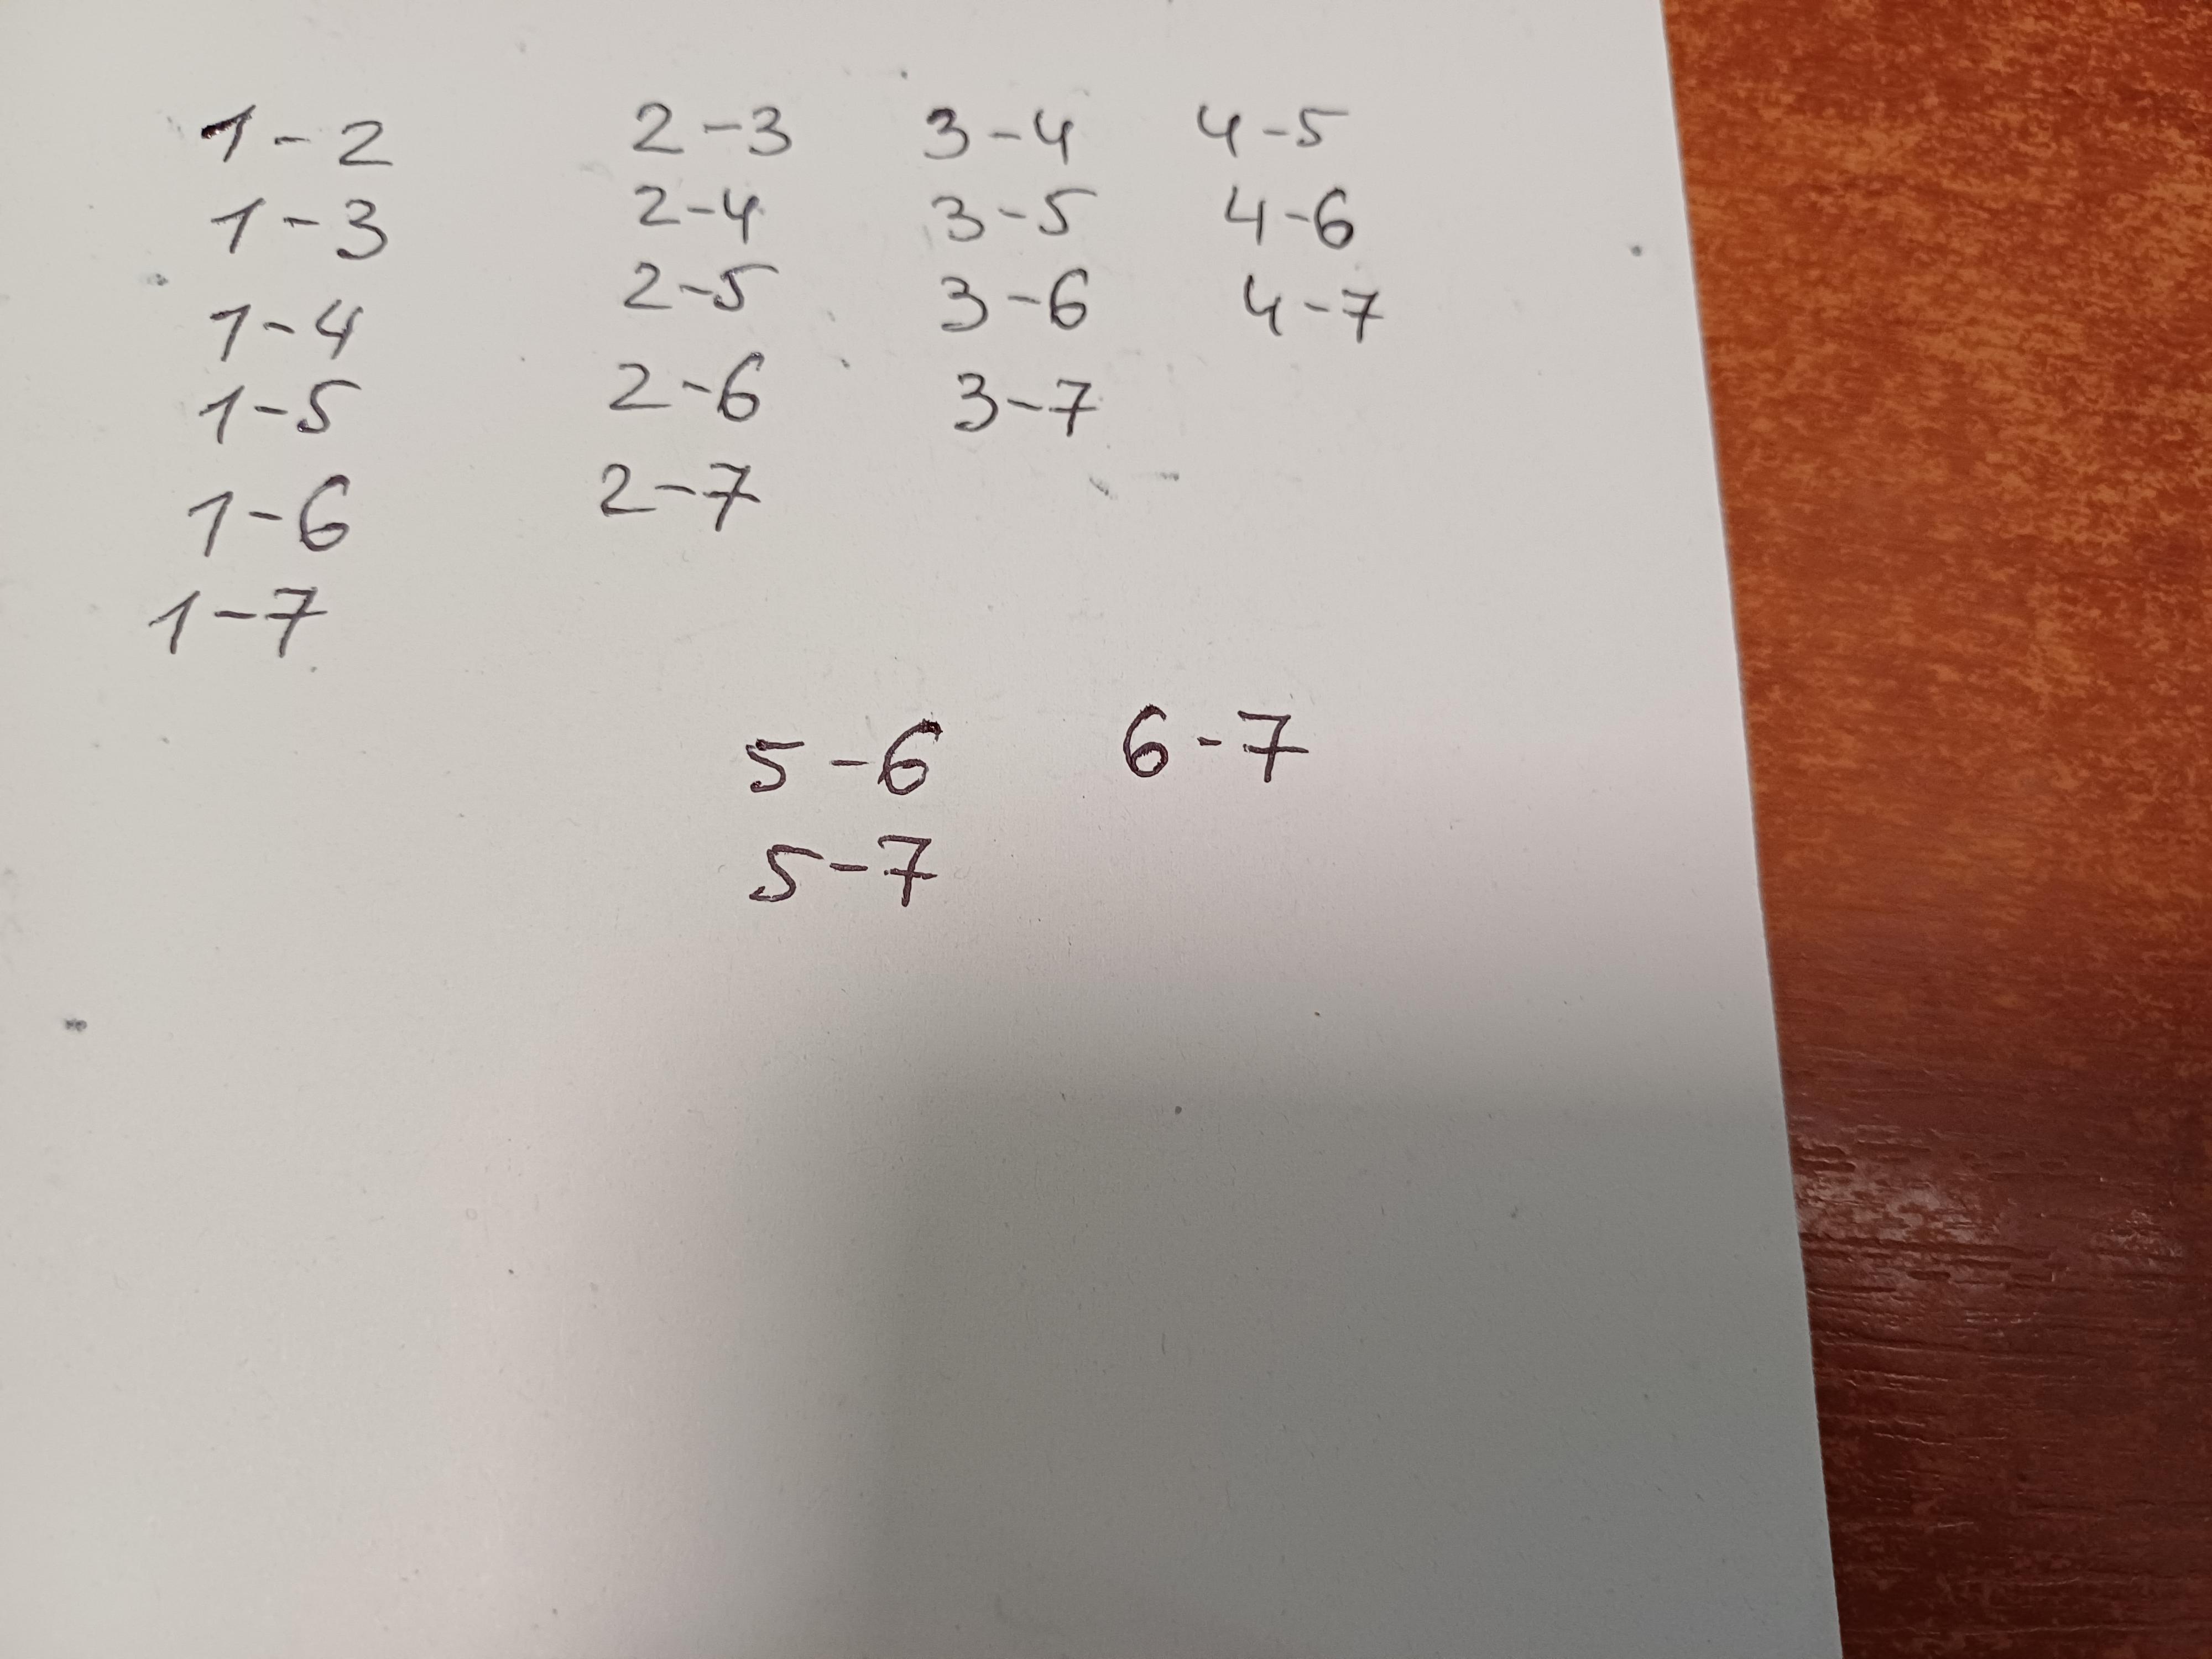 1-2 2-3 3-4 4-5
1-3 2-4 3-5 4-6
1-4 2-5 3-6 4-7
1-5 2-6 3-7
1-6 2-7
1-7
5-6 6-7
5-7